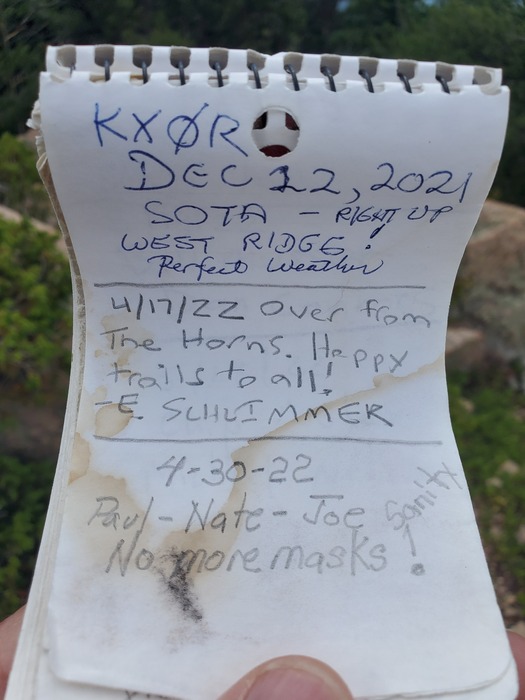 KXØR
DEC 12, 2021
SOTA - RIGHT UP
WEST RIDGE!
Perfect Weather
4/17/22 Over from
The Horns. Happy
trails to all!
-E. SCHLIMMER
4-30-22
Paul-Nate-Joe
No more masks!
Sanity